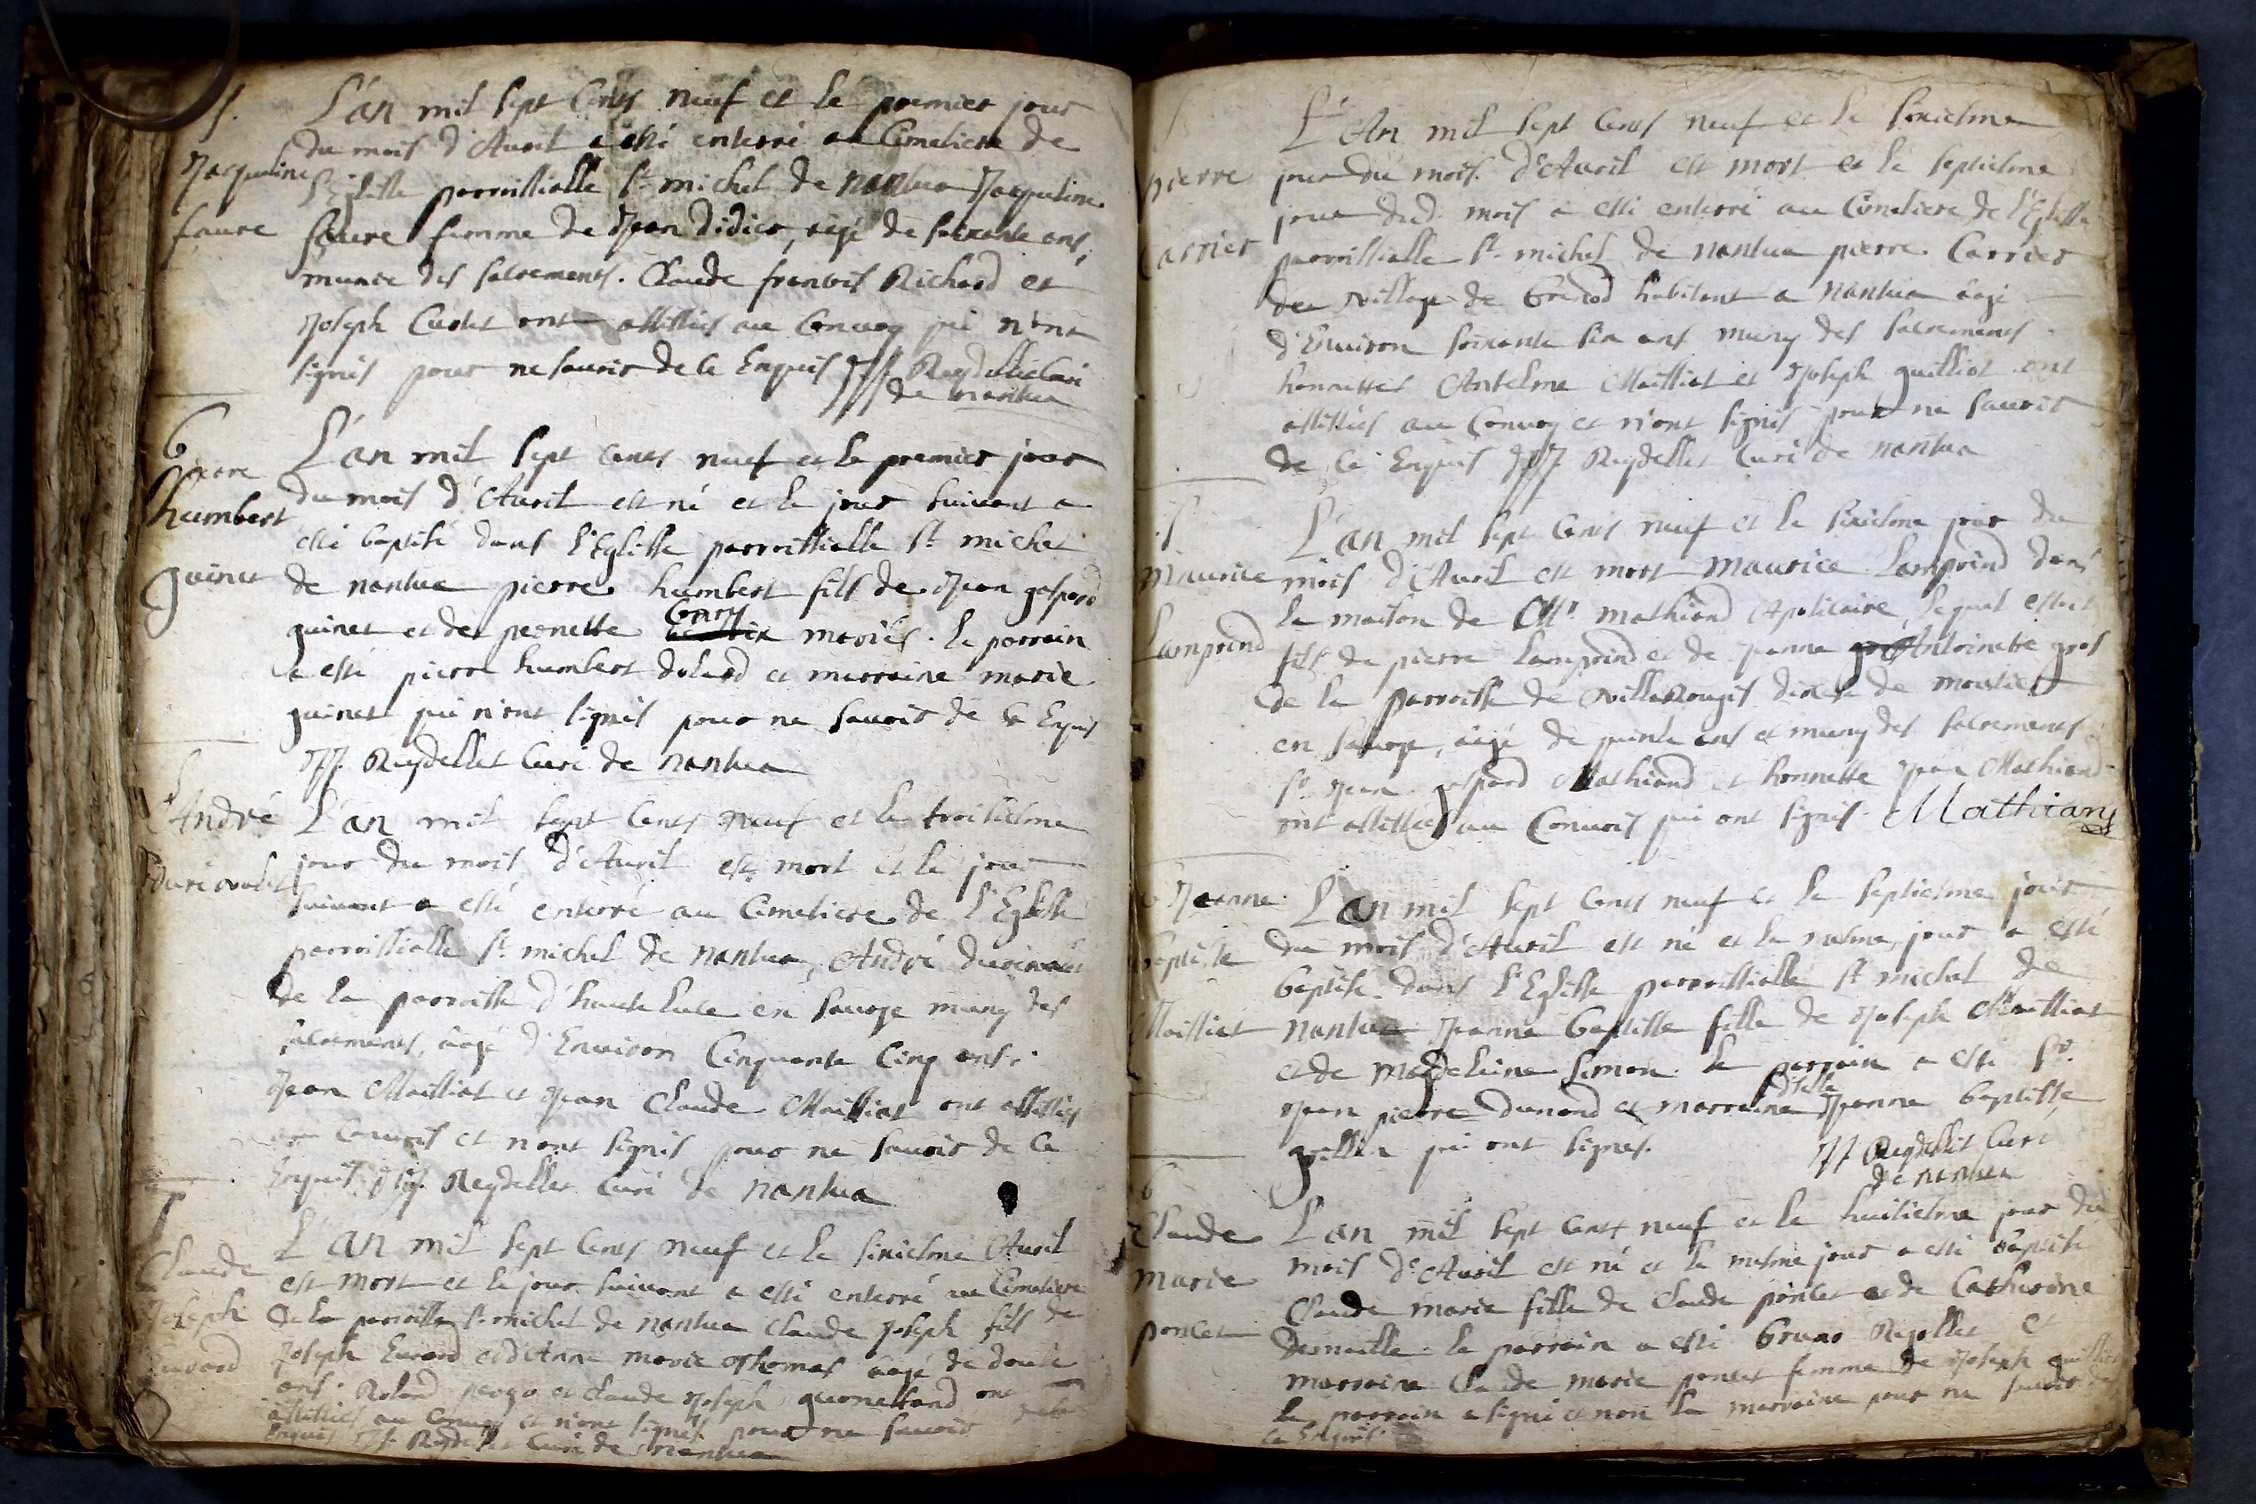 S.
Jacqueline
faure
L'an mil sept Cents neuf et le premier jour
du mois d'Avril a esté enterré au Cimetiere de
l'Eglisse parroissialle St. michel de nantua Jacqueline
faure femme de Jean Didier, aagé de soixante ans,
munie des sacrements. Claude francois Richard et
Joseph Cudet ont assistés au Convoy qui n'ont
signés pour ne savoir de ce Enquis JJ Reydellet Curé
de nantua
B
pierre
humbert
guinet
L'an mil sept cents neuf et le premier jour
du mois d'Avril est né et le jour suivant a
esté baptisé dans l'Eglisse parroissialle St. michel
de nantua pierre humbert fils de Jean gaspard
guinet et de pernette mariés. le parrain
a esté pierre humbert et marraine marie
guinet qui n'ont signés pour ne savoir de ce Enquis
JJ. Reydellet Curé de nantua
S
André
L'an mil sept Cents neuf et le troisiesme
jour du mois d'Avril est mort et le jour
suivant a esté enterré au Cimetiere de l'Eglisse
parroissialle St. michel de nantua, André
de la parroisse d'haute luce en Savoye muny des
sacrements, aagé d'Environ Cinquante Cinq ans.
Jean Mailliat et Jean Claude Mailliat ont assistés
au Convois et n'ont signés pour ne savoir de ce
Enquis JJ. Reydellet Curé de nantua
S
Claude
Joseph
Evrard
L'an mil sept Cents neuf et le sixiesme Avril
est mort et le jour suivant a esté enterré au Cimetiere
de la parroisse St. michel de nantua Claude Joseph fils de
Joseph Evrard et d'Anne marie Thomas aagé de douze
ans. Roland et Claude Joseph ont
assistés au Convoy et n'ont signés pour ne savoir de ce
Enquis JJ. Reydellet Curé de nantua
S
pierre
Carrier
L'An mil sept Cents neuf et le sixiesme
jour du mois d'Avril est mort et le septiesme
jour dud. mois a esté enterré au Cimetiere de l'Eglisse
parroissialle St. michel de nantua pierre Carrier
du village de habitant a nantua aagé
d'Environ soixante six ans muny des sacrements.
honnettes Antelme Mailliat et Joseph guilliot ont
assistés au Convoy et n'ont signés pour ne savoir
de ce Enquis JJ Reydellet Curé de nantua
S
Maurice
Lamproind
L'an mil sept Cents neuf et le sixiesme jour du
mois d'Avril est mort Maurice Lamproind dans
la maison de Mr. mathiand Apoticaire, lequel estoit
fils de pierre Lamproind et de Antoinette gros
de la parroisse de diocese de moutier
en Savoye, aagé de ans et muny des sacrements.
Sr. Jean gaspard Mathiand et honnette Jean Mathiand
ont assistés au Convois qui ont signés. Mathiand
B Jeanne
baptiste
Mailliat
L'an mil sept Cents neuf et le septiesme jour
du mois d'Avril est né et le mesme jour a esté
baptisé dans l'Eglisse parroissialle St michel de
nantua Jeanne baptiste fille de Joseph Mailliat
et de Magdeleine Simon. le parrain a esté Sr.
Jean pierre Dunand et marraine Dlle Jeanne baptiste
qui ont signés.
JJ Reydellet Curé
de nantua
B
Claude
Marie
poncet
L'an mil sept Cents neuf et le huitiesme jour du
mois d'Avril est né et le mesme jour a esté baptisé
Claude marie fille de Claude poncet et de Catherine
le parrain a esté Bruno et
marraine Claude marie poncet femme de Joseph
le parrain a signé et non la marraine pour ne savoir de
ce Enquis.